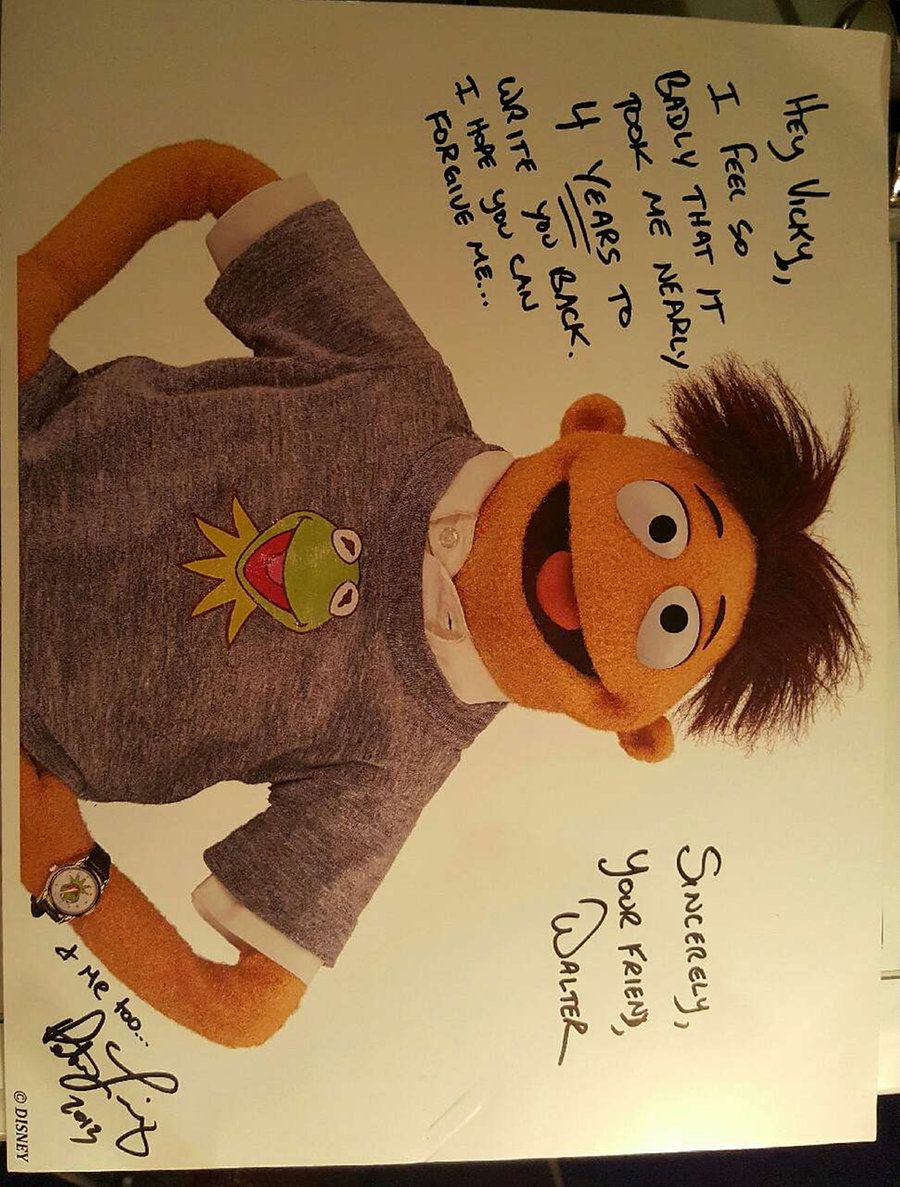 Hey Vicky,
I FEEL SO
BADLY THAT IT
TOOK ME NEARLY
4 YEARS TO
WRITE YOU BACK.
I HOPE YOU CAN
FORGIVE ME...
SINCERELY,
YOUR FRIEND,
WALTER
& ME TOO...
© DISNEY